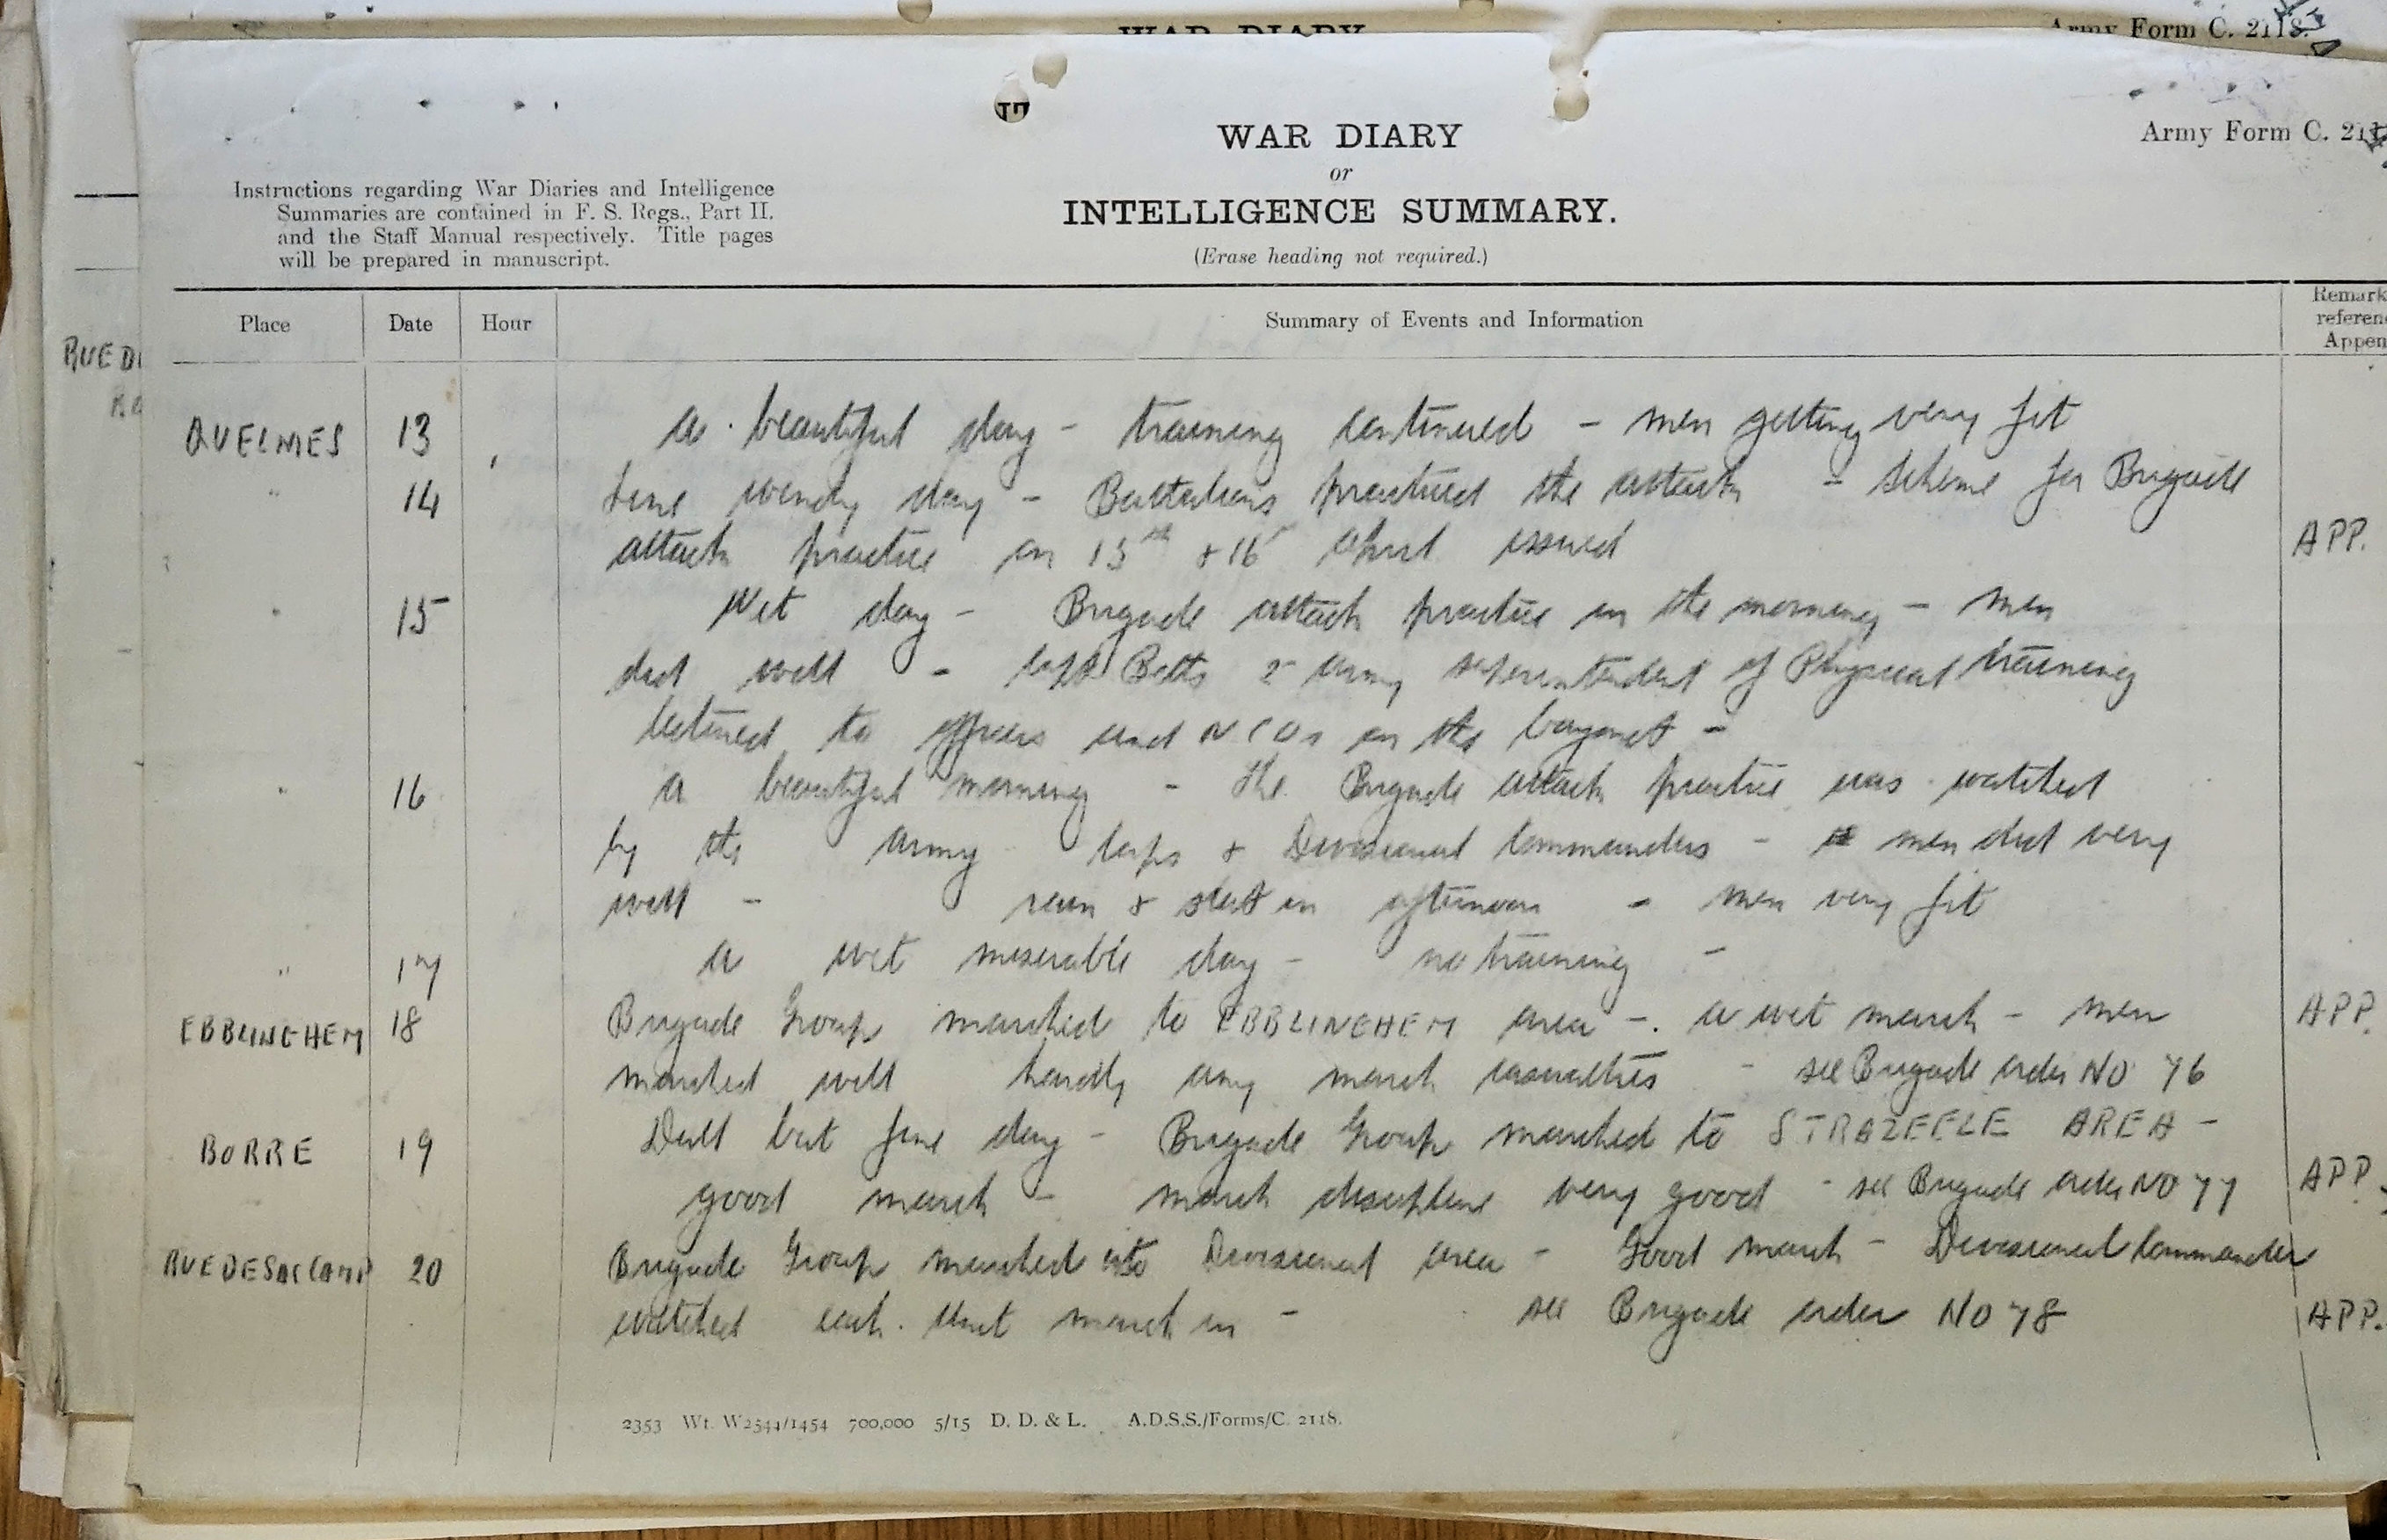 WAR DIARY
Army Form C. 2118.
WAR DIARY
or
INTELLIGENCE SUMMARY.
(Erase heading not required.)
Army Form C. 211
Instructions regarding War Diaries and Intelligence
Summaries are contained in F. S. Regs., Part II.
and the Staff Manual respectively. Title pages
will be prepared in manuscript.
Place Date Hour Summary of Events and Information Remark
referen
Appen
RUE D
QUELMES 13 A beautiful day - training continued - men getting very fit
" 14 Fine windy day - Battalions practised the attack - scheme for Brigade
attack practice on 15th & 16 issued APP.
" 15 Wet day - Brigade attack practice in the morning - men
did well - Capt Betts 2 army superintendent of Physical training
lectured to officers and NCOs on the bayonet -
" 16 A beautiful morning - The Brigade attack practice was watched
by the Army Corps & Divisional Commanders - men did very
well - rain & sleet in afternoon - men very fit
" 17 A wet miserable day - no training -
EBBLINGHEM 18 Brigade Group marched to EBBLINGHEM area - a wet march - men APP.
marched well hardly any march casualties - see Brigade order NO 76
BORRE 19 Dull but fine day - Brigade Group marched to STRAZEELE AREA -
good march - march discipline very good - see Brigade order NO 77 APP.
RUE DE SAC CAMP 20 Brigade Group marched into Divisional area - Good march - Divisional Commander
watched each unit march in - see Brigade order NO 78 APP.
2353 Wt. W2544/1454 700,000 5/15 D. D. & L. A.D.S.S./Forms/C. 2118.